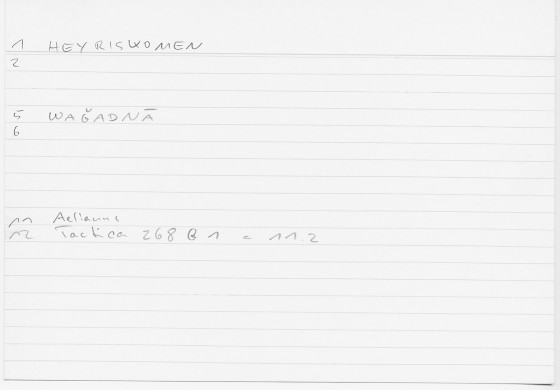 1 HEYRISWOMEN
2
5 WAǦADNĀ
6
11 Aelianus
12 Tactica 268 B 1 = 11.2